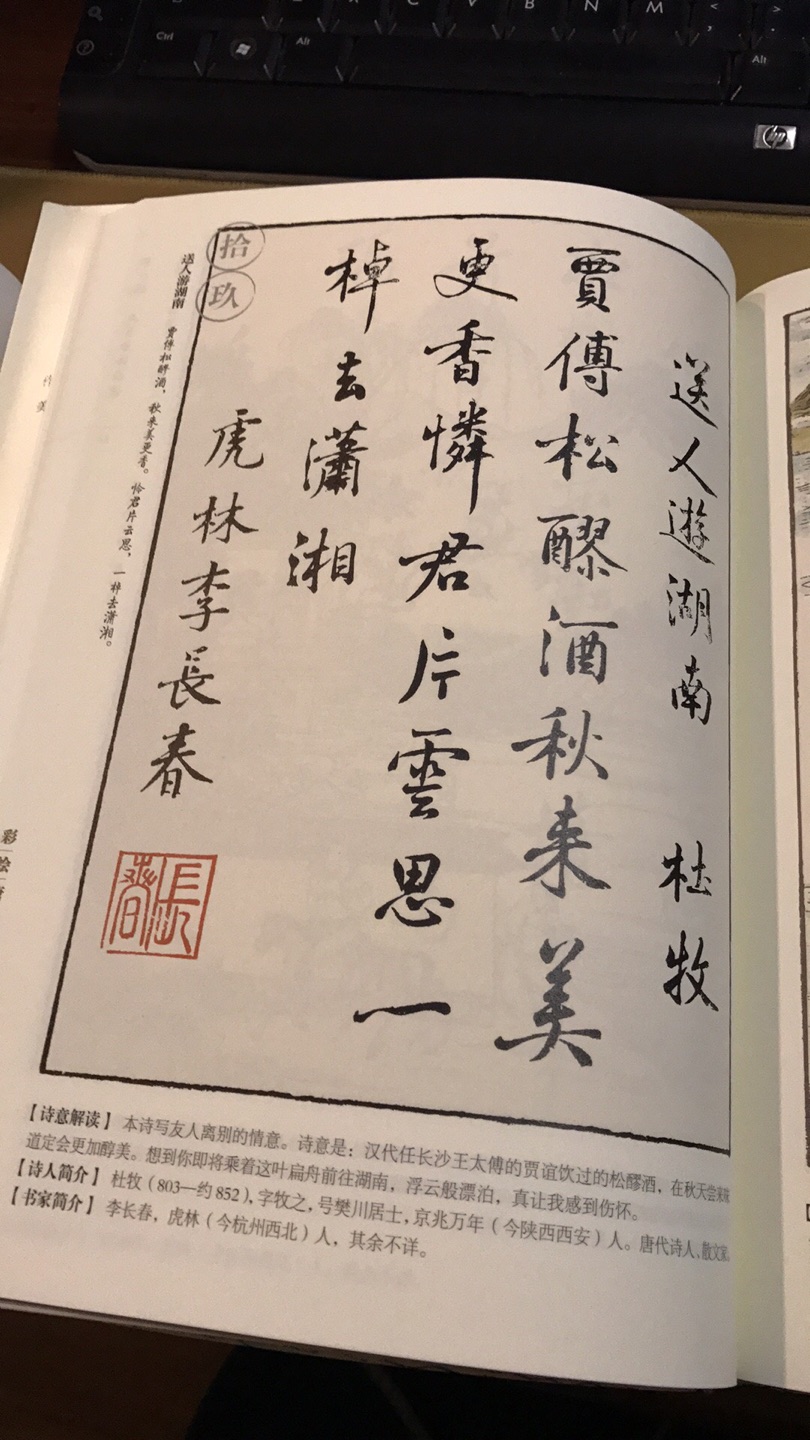 Ctrl Alt V B N M Alt
hp
送人遊湖南 杜牧
賈傅松醪酒秋来美
更香憐君片雲思一
棹去瀟湘
虎林李長春
長春
拾玖
送人游湖南
贾傅松醪酒，秋来美更香。怜君片云思，一棹去潇湘。
彩绘
【诗意解读】 本诗写友人离别的情意。诗意是：汉代任长沙王太傅的贾谊饮过的松醪酒，在秋天尝来味
道定会更加醇美。想到你即将乘着这叶扁舟前往湖南，浮云般漂泊，真让我感到伤怀。
【诗人简介】 杜牧（803—约852），字牧之，号樊川居士，京兆万年（今陕西西安）人。唐代诗人、散文家。
【书家简介】 李长春，虎林（今杭州西北）人，其余不详。